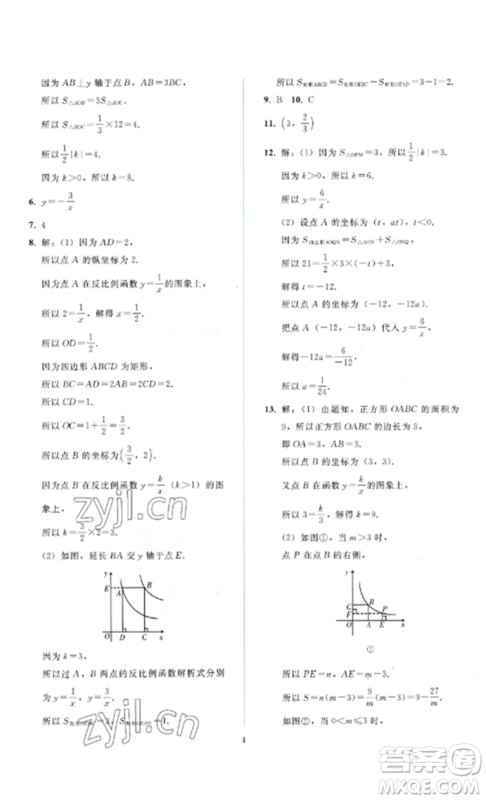 因为 AB⊥y 轴于点 B，AB=3BC，
所以 S△AOB=3S△BOC.
所以 S△AOB=1/3×12=4.
所以 1/2|k|=4.
因为 k>0，所以 k=8.
6. y=-3/x
7. 4
8. 解：(1) 因为 AD=2，
所以点 A 的纵坐标为 2.
因为点 A 在反比例函数 y=1/x 的图象上，
所以 2=1/x，解得 x=1/2.
所以 OD=1/2.
因为四边形 ABCD 为矩形，
所以 BC=AD=2，AB=CD=1.
所以 CD=1.
所以 OC=1+1/2=3/2.
所以点 B 的坐标为 (3/2，2).
因为点 B 在反比例函数 y=k/x (k>1) 的图
象上，
所以 k=3/2×2=3.
(2) 如图，延长 BA 交 y 轴于点 E.
y
E A B
O D C x
因为 k=3，
所以过 A，B 两点的反比例函数解析式分别
为 y=1/x，y=3/x.
所以 S矩形OCBE=3，S矩形OEAD=1.
所以 S矩形ABCD=S矩形OCBE-S矩形OEAD=3-1=2.
9. B 10. C
11. (3，2/3)
12. 解：(1) 因为 S△OPM=3，所以 1/2|k|=3.
因为 k>0，所以 k=6.
所以 y=6/x.
(2) 设点 A 的坐标为 (t，at)，t<0.
所以 21=1/2×3×(-t)+3.
解得 t=-12.
所以点 A 的坐标为 (-12，-12a).
把点 A (-12，-12a) 代入 y=6/x，
解得 -12a=6/-12.
所以 a=1/24.
13. 解：(1) 由题知，正方形 OABC 的面积为
9，所以正方形 OABC 的边长为 3，
即 OA=3，AB=3.
所以点 B 的坐标为 (3，3).
又点 B 在函数 y=k/x 的图象上，
所以 3=k/3，解得 k=9.
(2) 如图①，当 m>3 时，
点 P 在点 B 的右侧，
y
C B
F P
O A E x
①
所以 PE=n，AE=m-3.
所以 S=n(m-3)=9/m(m-3)=9-27/m.
如图②，当 0<m≤3 时，
4
zyjl.cn
zyjl.cn
答案圈
MXQE.COM